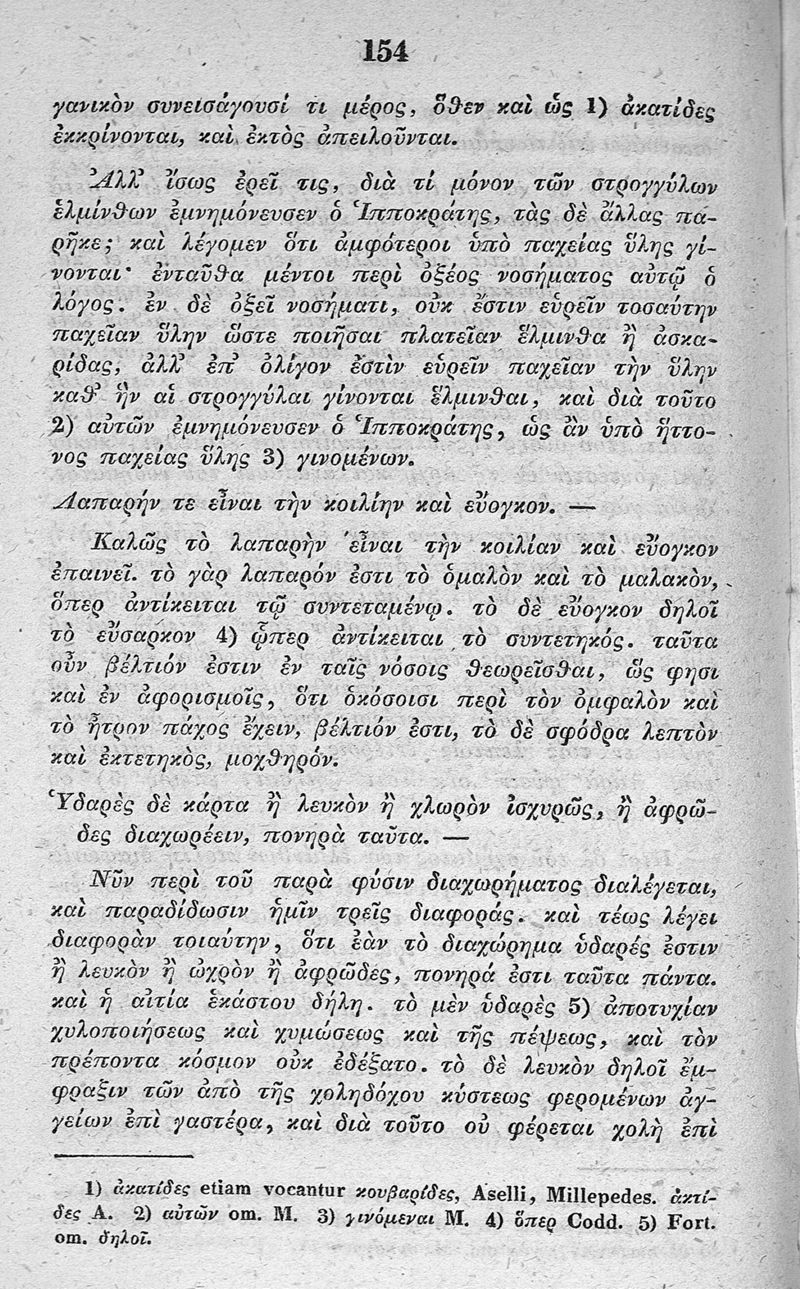 154
γανικὸν συνεισάγουσί τι μέρος, ὅθεν καὶ ὡς 1) ἀκατίδες
ἐκκρίνονται, καὶ ἐκτὸς ἀπειλοῦνται.
Ἀλλ’ ἴσως ἐρεῖ τις, διὰ τί μόνον τῶν στρογγύλων
ἑλμίνθων ἐμνημόνευσεν ὁ Ἱπποκράτης, τὰς δὲ ἄλλας πα-
ρῆκε; καὶ λέγομεν ὅτι ἀμφότεροι ὑπὸ παχείας ὕλης γί-
νονται· ἐνταῦθα μέντοι περὶ ὀξέος νοσήματος αὐτῷ ὁ
λόγος. ἐν δὲ ὀξεῖ νοσήματι, οὐκ ἔστιν εὑρεῖν τοσαύτην
παχεῖαν ὕλην ὥστε ποιῆσαι πλατεῖαν ἕλμινθα ἢ ἀσκα-
ρίδας, ἀλλ’ ἐπ’ ὀλίγον ἔστὶν εὑρεῖν παχεῖαν τὴν ὕλην
καθ’ ἣν αἱ στρογγύλαι γίνονται ἕλμινθαι, καὶ διὰ τοῦτο
2) αὐτῶν ἐμνημόνευσεν ὁ Ἱπποκράτης, ὡς ἂν ὑπὸ ἥττο-
νος παχείας ὕλης 3) γινομένων.
Λαπαρήν τε εἶναι τὴν κοιλίην καὶ εὔογκον. —
Καλῶς τὸ λαπαρὴν εἶναι τὴν κοιλίαν καὶ εὔογκον
ἐπαινεῖ. τὸ γὰρ λαπαρόν ἐστι τὸ ὁμαλὸν καὶ τὸ μαλακὸν,
ὅπερ ἀντίκειται τῷ συντεταμένῳ. τὸ δὲ εὔογκον δηλοῖ
τὸ εὔσαρκον 4) ᾧπερ ἀντίκειται τὸ συντετηκός. ταῦτα
οὖν βέλτιόν ἐστιν ἐν ταῖς νόσοις θεωρεῖσθαι, ὥς φησι
καὶ ἐν ἀφορισμοῖς, ὅτι ὁκόσοισι περὶ τὸν ὀμφαλὸν καὶ
τὸ ἦτρον πάχος ἔχειν, βέλτιόν ἐστι, τὸ δὲ σφόδρα λεπτὸν
καὶ ἐκτετηκὸς, μοχθηρόν.
Ὑδαρὲς δὲ κάρτα ἢ λευκὸν ἢ χλωρὸν ἰσχυρῶς, ἢ ἀφρῶ-
δες διαχωρέειν, πονηρὰ ταῦτα. —
Νῦν περὶ τοῦ παρὰ φύσιν διαχωρήματος διαλέγεται,
καὶ παραδίδωσιν ἡμῖν τρεῖς διαφοράς. καὶ τέως λέγει
διαφορὰν τοιαύτην, ὅτι ἐὰν τὸ διαχώρημα ὑδαρές ἐστιν
ἢ λευκὸν ἢ ὠχρὸν ἢ ἀφρῶδες, πονηρά ἐστι ταῦτα πάντα.
καὶ ἡ αἰτία ἑκάστου δήλη. τὸ μὲν ὑδαρὲς 5) ἀποτυχίαν
χυλοποιήσεως καὶ χυμώσεως καὶ τῆς πέψεως, καὶ τὸν
πρέποντα κόσμον οὐκ ἐδέξατο. τὸ δὲ λευκὸν δηλοῖ ἔμ-
φραξιν τῶν ἀπὸ τῆς χοληδόχου κύστεως φερομένων ἀγ-
γείων ἐπὶ γαστέρα, καὶ διὰ τοῦτο οὐ φέρεται χολὴ ἐπὶ
1) ἀκατίδες etiam vocantur κουβαρίδες, Aselli, Millepedes. ἀκτί-
δες A. 2) αὐτῶν om. M. 3) γινόμεναι M. 4) ὅπερ Codd. 5) Fort.
om. δηλοῖ.